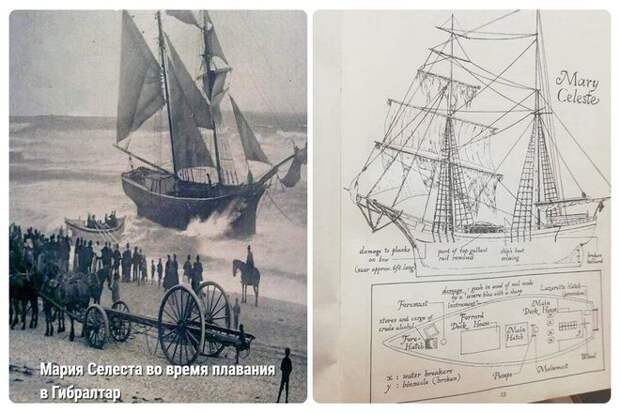 Мария Селеста во время плавания
в Гибралтар
Mary
Celeste
damage to planks
on bow
(scar approx. 6ft long)
part of top gallant
rail removed
ship's boat
missing
broken
damage: gash in wood of rail made
by a severe blow with a sharp
instrument
Lazarette Hatch
Foremast
stores and cargo of
crude alcohol
Fore
Hatch
Forward
Deck House
Main
Hatch
Main
Deck House
x : water breakers
y : binnacle (broken)
Pumps
Mainmast
Wheel